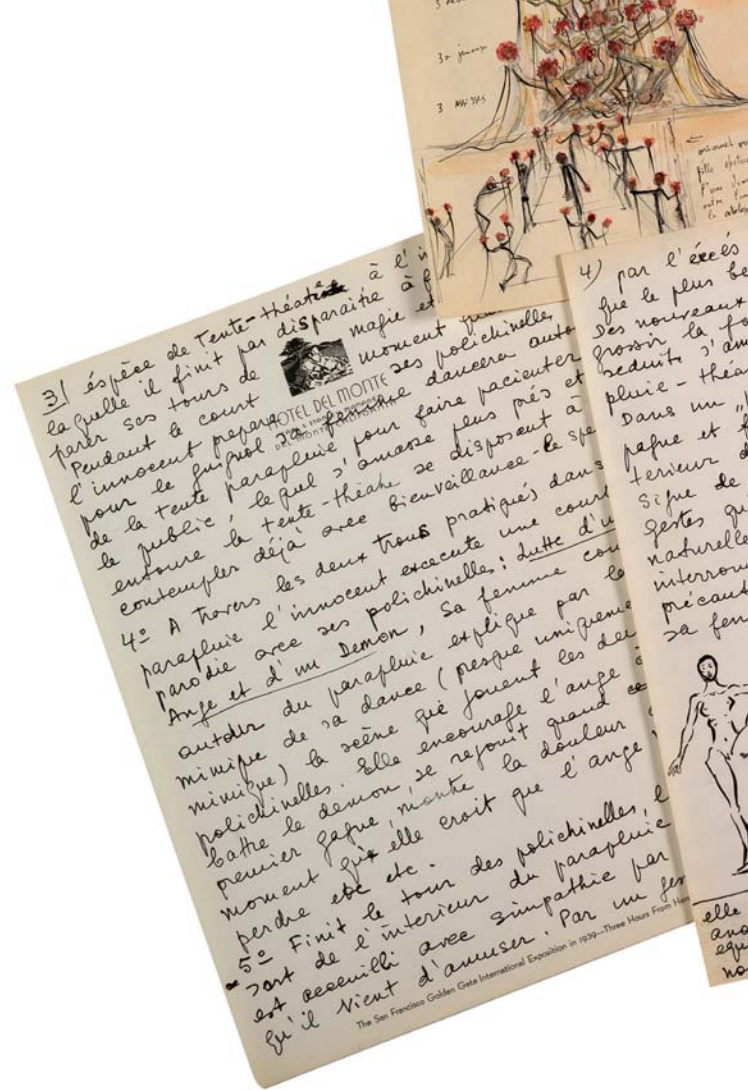 3
30
3
3) éspèce de Tente-théatre à l'
la quelle il finit par disparaitre à
parer ses tours de magie et
Pendant le court moment
l'innocent prepare ses polichinelles
pour le guignol sa femme dancera auto
de la tente parapluie pour faire pacienter
le public, lequel s'amasse plus près et
entoure la tente-théatre se disposant à
contempler déjà avec bienveillance le spe
HOTEL DEL MONTE
DEL MONTE, CALIFORNIA
4º A travers les deux trous pratiqués dans
parapluie l'innocent excecute une court
parodie avec ses polichinelles: Lutte d'u
Ange et d'un Demon, Sa femme
autour du parapluie explique par
mimique de sa dance (presque uniqueme
mimique) la scène que jouent les deu
polichinelles. Elle encourage l'ange à
battre le demon, se rejouit quand ce
premier gagne, montre la douleur
moment que elle croit que l'ange
perdre etc etc.
5º Finit le tour des polichinelles, l
sort de l'interieur du parapluie
est acceuilli avec simpathie par
qu'il vient d'amuser. Par un
The San Francisco Golden Gate International Exposition in 1939—Three Hours From Here
4) par l'éxcés
que le plus be
Des nouveaux
grossir la fo
seduite s'am
pluie-théa
Dans un
pagne et
terieur d
Signe de
gestes qu
naturelle
interrom
précaut
sa fem
elle